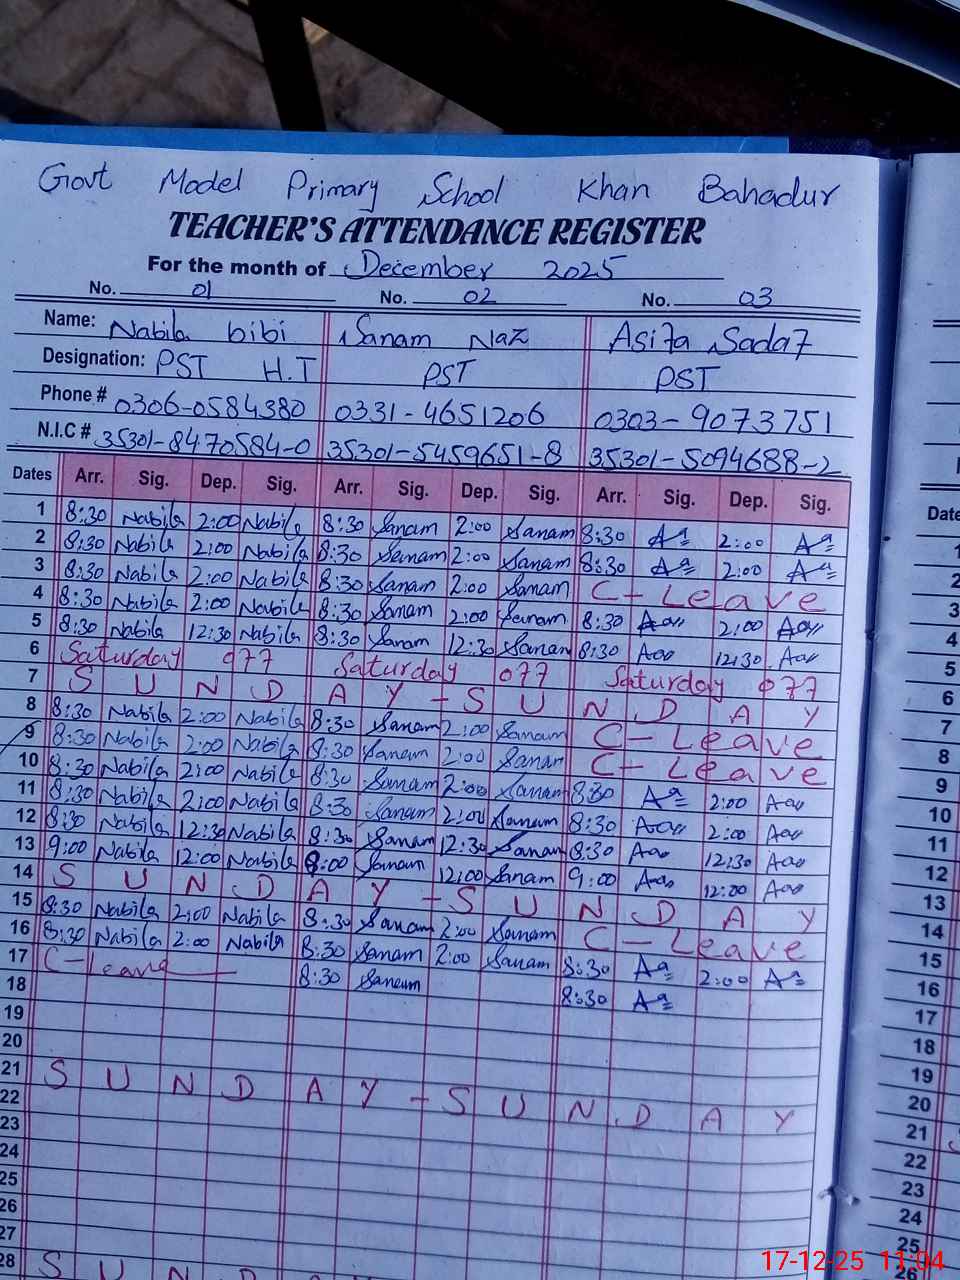 Govt Model Primary School Khan Bahadur
TEACHER'S ATTENDANCE REGISTER
For the month of December 2025
No. 01 No. 02 No. 03
Name: Nabila bibi Sanam Naz Asifa Sadaf
Designation: PST H.T PST PST
Phone # 0306-0584380 0331-4651206 0303-9073751
N.I.C # 35301-8470584-0 35301-5459651-8 35301-5094688-2
Dates Arr. Sig. Dep. Sig. Arr. Sig. Dep. Sig. Arr. Sig. Dep. Sig.
1 8:30 Nabila 2:00 Nabila 8:30 Sanam 2:00 Sanam 8:30 2:00
2 8:30 Nabila 2:00 Nabila 8:30 Sanam 2:00 Sanam 8:30 2:00
3 8:30 Nabila 2:00 Nabila 8:30 Sanam 2:00 Sanam C-Leave
4 8:30 Nabila 2:00 Nabila 8:30 Sanam 2:00 Sanam 8:30 2:00
5 8:30 Nabila 12:30 Nabila 8:30 Sanam 12:30 Sanam 8:30 12:30
6 Saturday off Saturday off Saturday off
7 SUNDAY-SUNDAY
8 8:30 Nabila 2:00 Nabila 8:30 Sanam 2:00 Sanam C-Leave
9 8:30 Nabila 2:00 Nabila 8:30 Sanam 2:00 Sanam C-Leave
10 8:30 Nabila 2:00 Nabila 8:30 Sanam 2:00 Sanam 8:30 2:00
11 8:30 Nabila 2:00 Nabila 8:30 Sanam 2:00 Sanam 8:30 2:00
12 8:30 Nabila 12:30 Nabila 8:30 Sanam 12:30 Sanam 8:30 12:30
13 9:00 Nabila 12:00 Nabila 9:00 Sanam 12:00 Sanam 9:00 12:00
14 SUNDAY-SUNDAY
15 8:30 Nabila 2:00 Nabila 8:30 Sanam 2:00 Sanam C-Leave
16 8:30 Nabila 2:00 Nabila 8:30 Sanam 2:00 Sanam 8:30 2:00
17 C-Leave 8:30 Sanam 8:30
18
19
20
21 SUNDAY-SUNDAY
22
23
24
25
26
27
28 SUND
Date
1
2
3
4
5
6
7
8
9
10
11
12
13
14
15
16
17
18
19
20
21
22
23
24
25
26
17-12-25 11:04